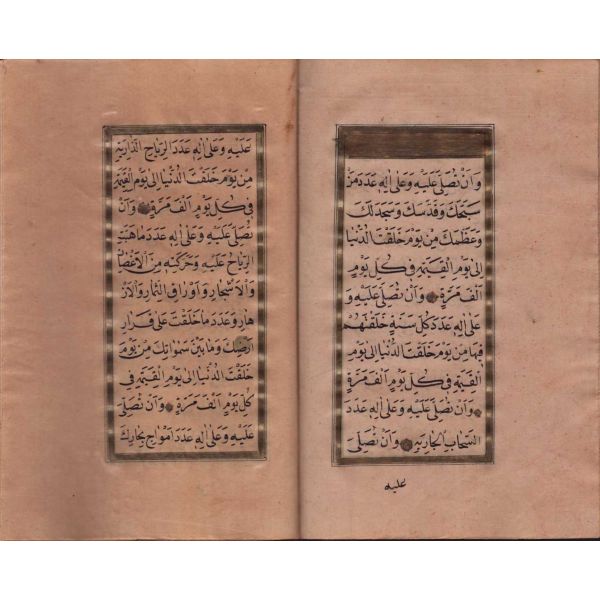 وَاَنْ تُصَلِّىَ عَلَيْهِ وَعَلٰى اٰلِهٖ عَدَدَ مَنْ
سَبَّحَكَ وَقَدَّسَكَ وَسَجَدَ لَكَ
وَعَظَّمَكَ مِنْ يَوْمِ خَلَقْتَ الدُّنْيَا
اِلٰى يَوْمِ الْقِيٰمَةِ فِى كُلِّ يَوْمٍ
اَلْفَ مَرَّةٍ وَاَنْ تُصَلِّىَ عَلَيْهِ وَ
عَلٰى اٰلِهٖ عَدَدَ كُلِّ سَنَةٍ خَلَقْتَهُمْ
فِيهَا مِنْ يَوْمِ خَلَقْتَ الدُّنْيَا اِلٰى يَوْمِ
الْقِيٰمَةِ فِى كُلِّ يَوْمٍ اَلْفَ مَرَّةٍ
وَاَنْ تُصَلِّىَ عَلَيْهِ وَعَلٰى اٰلِهٖ عَدَدَ
السَّحَابِ الْجَارِيَةِ وَاَنْ تُصَلِّىَ
عليه
عَلَيْهِ وَعَلٰى اٰلِهٖ عَدَدَ الرِّيَاحِ الذَّارِيَةِ
مِنْ يَوْمِ خَلَقْتَ الدُّنْيَا اِلٰى يَوْمِ الْقِيٰمَةِ
فِى كُلِّ يَوْمٍ اَلْفَ مَرَّةٍ وَاَنْ
تُصَلِّىَ عَلَيْهِ وَعَلٰى اٰلِهٖ عَدَدَ مَا هَبَّتِ
الرِّيَاحُ عَلَيْهِ وَحَرَّكَتْهُ مِنَ الْاَغْصَانِ
وَالْاَشْجَارِ وَاَوْرَاقِ الثِّمَارِ وَالْاَزْ
هَارِ وَعَدَدَ مَا خَلَقْتَ عَلٰى قَرَارِ
اَرْضِكَ وَمَا بَيْنَ سَمٰوَاتِكَ مِنْ يَوْمِ
خَلَقْتَ الدُّنْيَا اِلٰى يَوْمِ الْقِيٰمَةِ فِى
كُلِّ يَوْمٍ اَلْفَ مَرَّةٍ وَاَنْ تُصَلِّىَ
عَلَيْهِ وَعَلٰى اٰلِهٖ عَدَدَ اَمْوَاجِ بِحَارِكَ